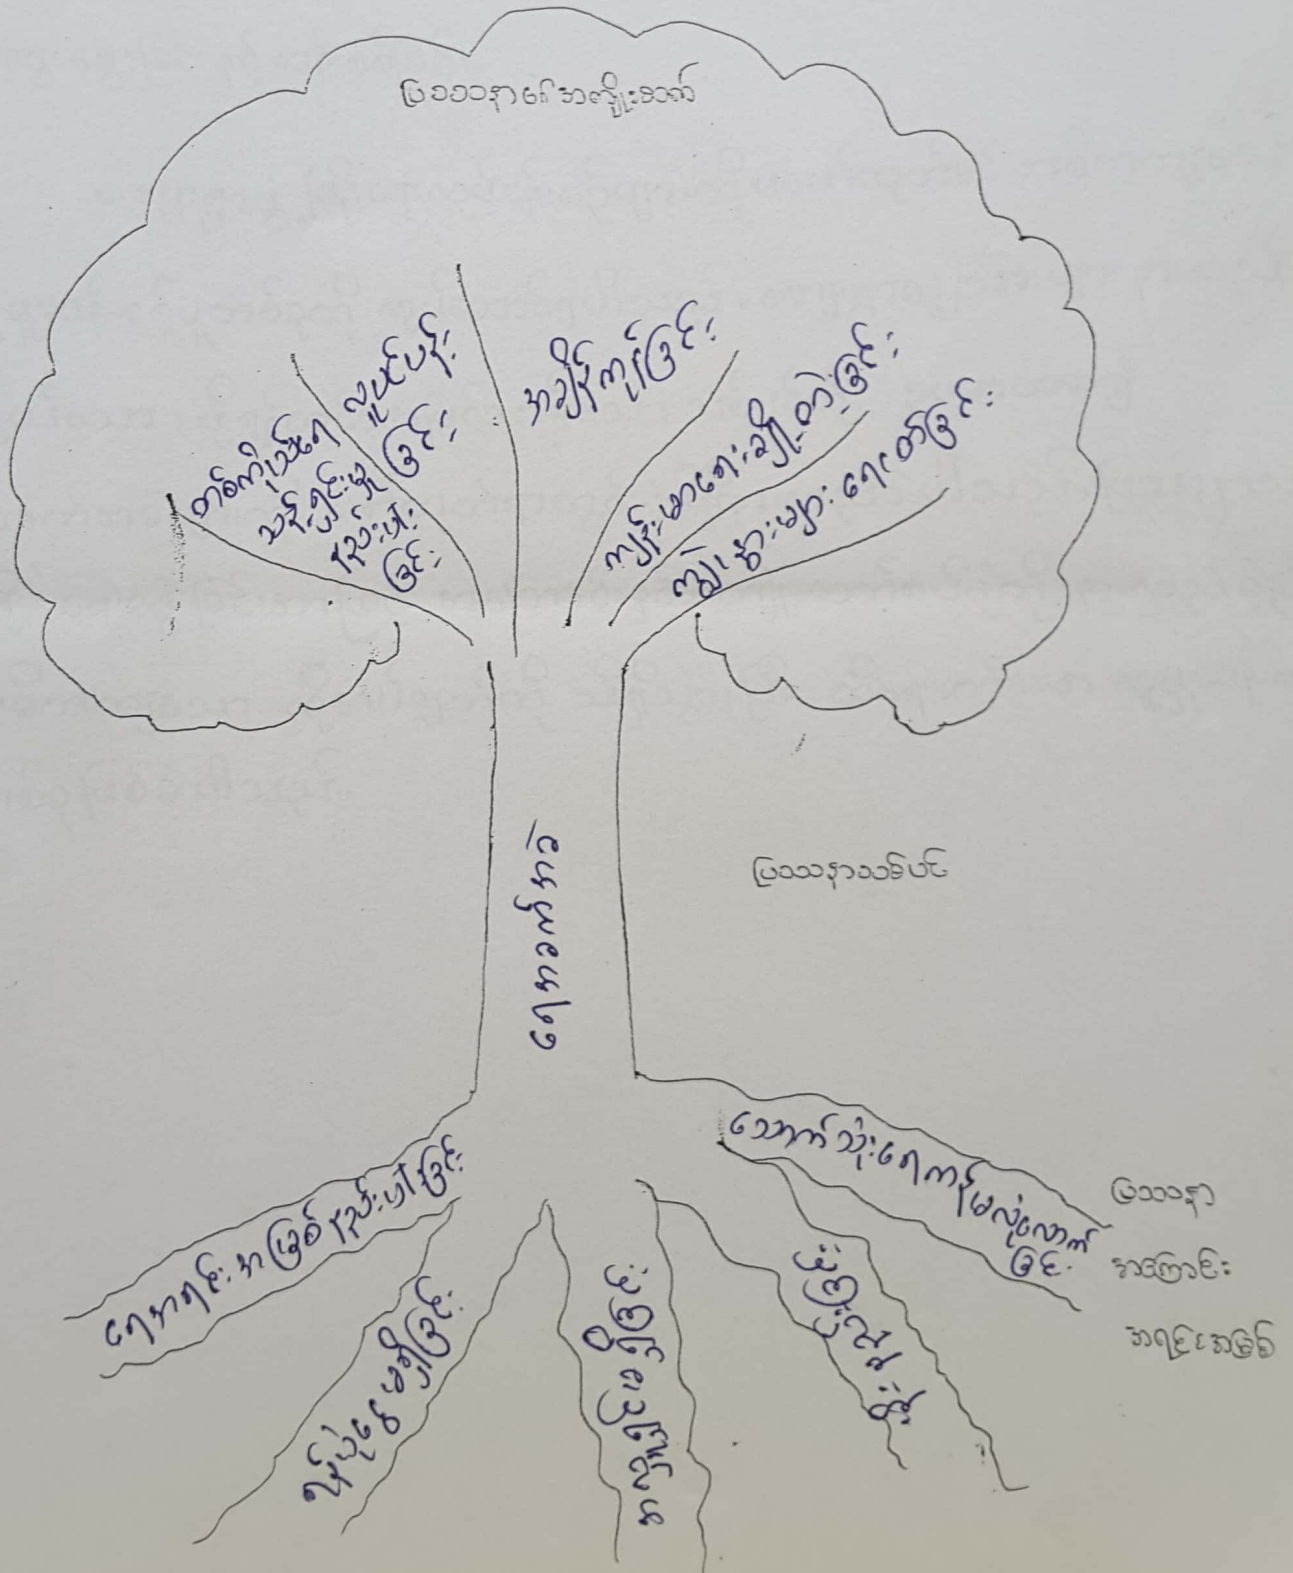 ပြဿနာ၏အကျိုးဆက်
တစ်ကိုယ်ရေ
သန့်ရှင်းမှု
နည်းပါး
ခြင်း
လူပင်ပန်း
ခြင်း
အချိန်ကုန်ခြင်း
ကျန်းမာရေးချို့တဲ့ခြင်း
ကျွဲ၊နွားများရေငတ်ခြင်း
ရေအခက်အခဲ
ပြဿနာသစ်ပင်
ရေအရင်းအမြစ်နည်းပါးခြင်း
ရန်ပုံငွေမရှိခြင်း
အလှူရှင်မရှိခြင်း
သောက်သုံးရေကန်မလုံလောက်
ခြင်း
ပြဿနာ
အကြောင်း
အရင်းအမြစ်